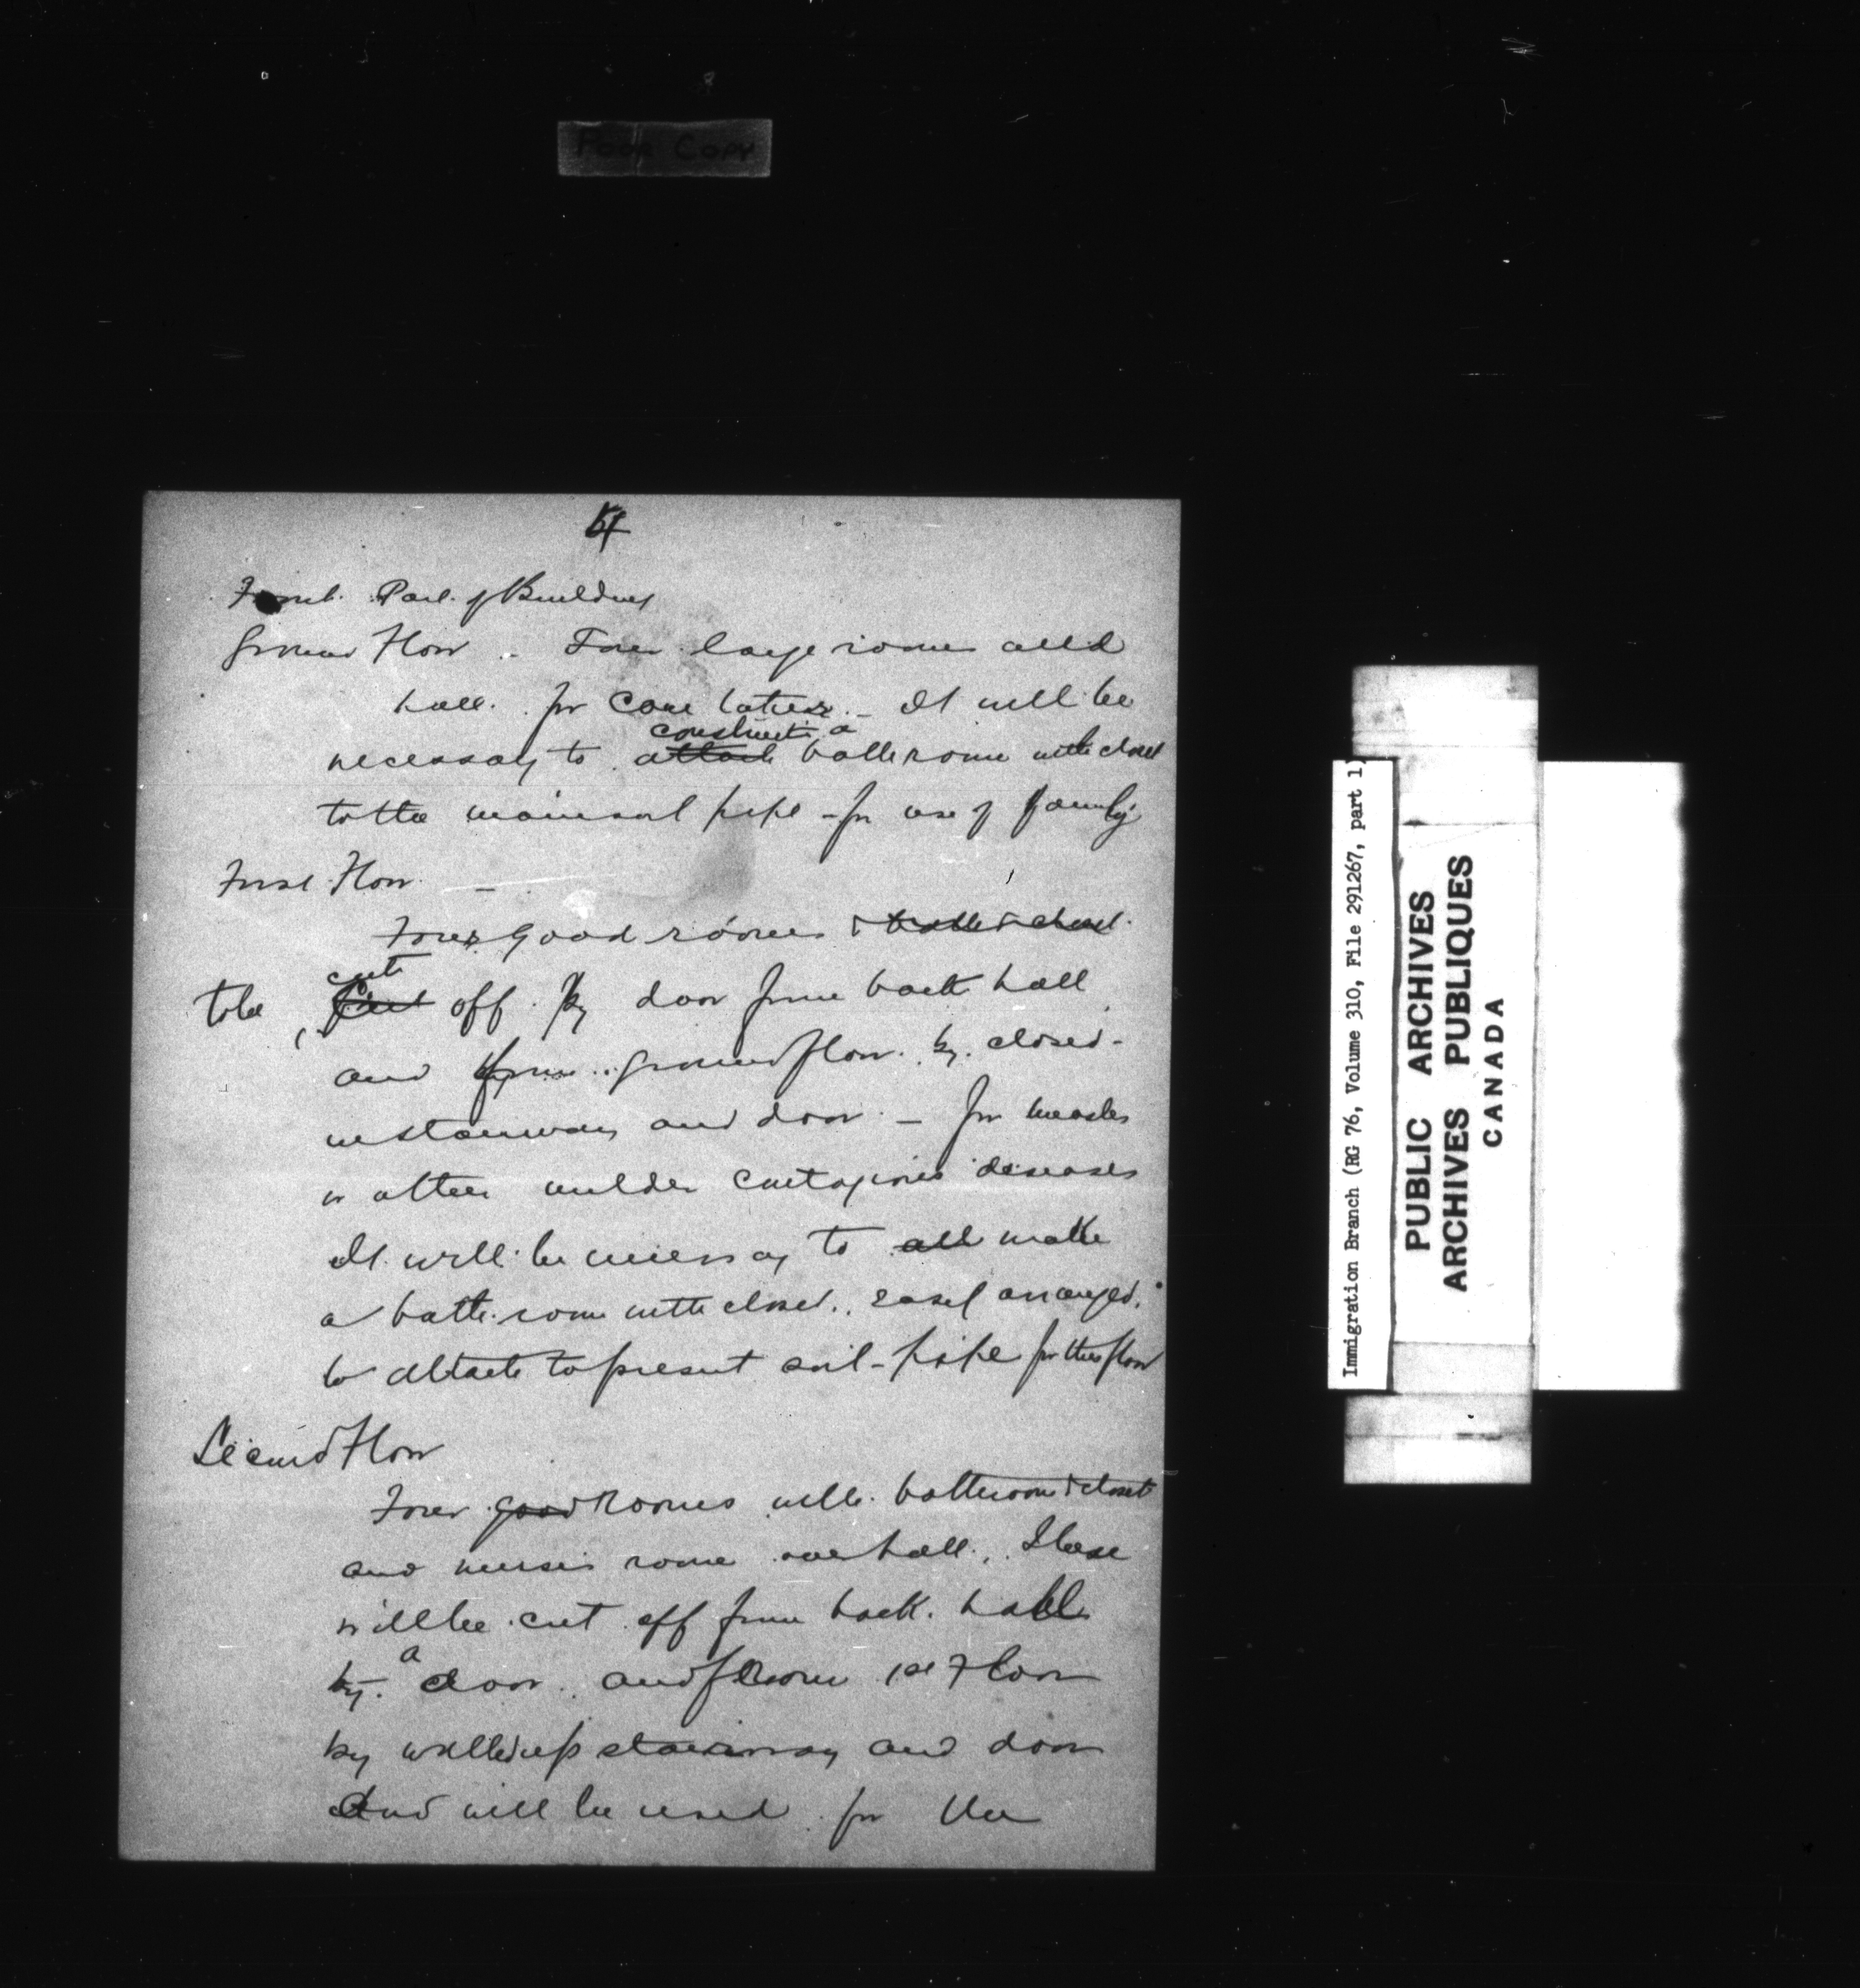 Poor Copy
4
Front Part of Building
Ground Floor - Four large rooms and
hall for Care taker - It will be
constructi a
necessary to attach bathroom with closet
to the main soil pipe - for use of family
First Floor -
Four good rooms & bath & closet
cut
to be off by door from back hall
and from ground floor by closed-
in stairway and door - for measles
or other milder contagious diseases
It will be necessary to all make
a bath-room with closet, easily arranged,
to attach to present soil-pipe for this floor
Second Floor
Four good Rooms with bathroom & closet
and nurses room over hall. These
will be cut off from back hall
a
by door and from 1st Floor
by walled up stairway and door
And will be used for the
Immigration Branch (RG 76, Volume 310, File 291267, part 1)
PUBLIC ARCHIVES
ARCHIVES PUBLIQUES
CANADA